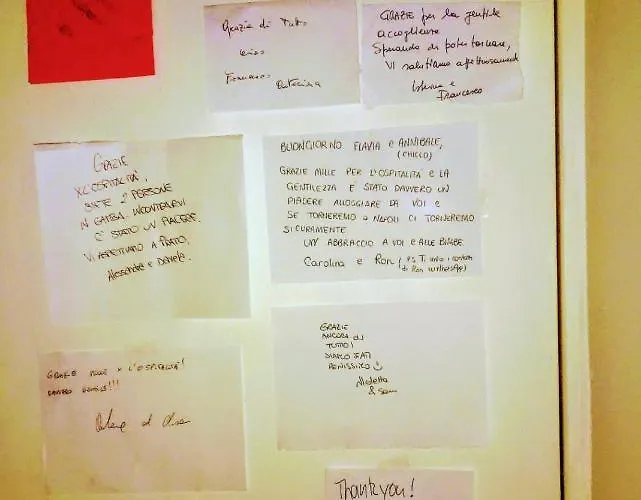 Grazie di Tutto
Francesco
GRAZIE per la gentile
accoglienza
Sperando di poter tornare,
Vi salutiamo affettuosamente
Francesco
GRAZIE
X L'OSPITALITÀ,
SIETE 2 PERSONE
IN GAMBA. INCONTRARVI
E' STATO UN PIACERE.
VI ASPETTIAMO A PRATO.
Alessandra e Daniele
BUONGIORNO FLAVIA e ANNIBALE,
(CHICCO)
GRAZIE MILLE PER L'OSPITALITÀ e LA
GENTILEZZA È STATO DAVVERO UN
PIACERE ALLOGGIARE DA VOI e
SE TORNEREMO a NAPOLI CI TORNEREMO
SICURAMENTE
UN ABBRACCIO A VOI e ALLE BIMBE.
Carolina e Ron (P.S. Ti invio i contatti
di Ron su WhatsApp)
GRAZIE MILLE X L'OSPITALITÀ!
GRAZIE
ANCORA DI
TUTTO!
SIAMO STATI
BENISSIMO
& Sam
Thank you!